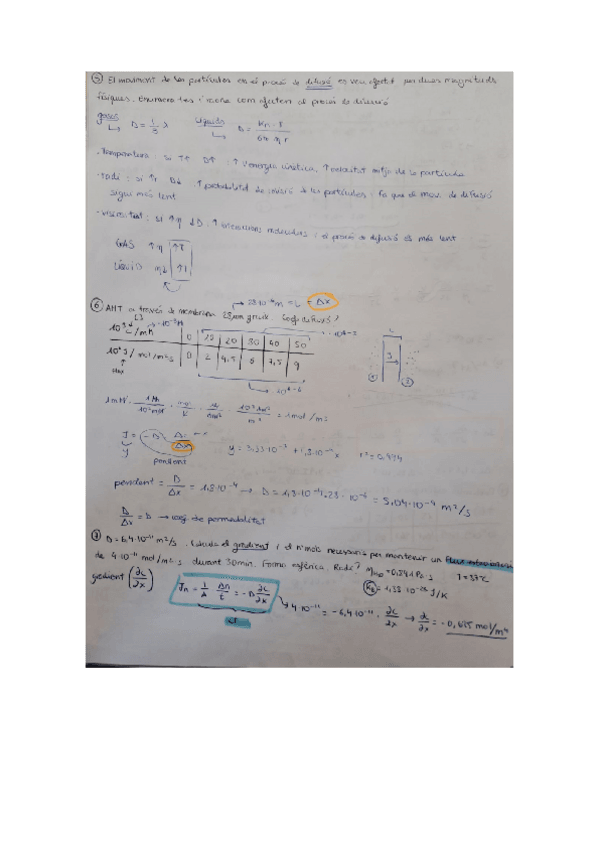 ⑤ El moviment de les partícules en el procés de difusió es veu afectat per dues magnituds
físiques. Enumera-les i raona com afecten al procés de difusió
gasos D = 1/3 λ líquids D =
- Temperatura: si T↑ D↑ : ↑ energia cinètica, ↑ velocitat mitja de la partícula
- radi: si ↑r D↓ ↑ probabilitat de col·lisió de les partícules fa que el mov. de difusió
sigui més lent
- viscositat: si ↑η ↓D. ↑ interaccions moleculars i el procés de difusió és més lent
GAS ↑η ↑T
LÍQUID η↓ ↑T
28·10⁻⁶m = L = Δx
⑥ AHT a través de membrana 28μm gruix. Coef. difusió?
0 20 30 40 50
J/mol/m²s 0 2 4,5 6 7,5 9
= 1 mol/m³
J = -D Δc/Δx
y r² = 0,994
pendent
pendent = D/Δx = 1,8·10⁻⁴ → D = 1,8·10⁻⁴·28·10⁻⁶ = 5,04·10⁻⁹ m²/s
D/Δx = → coef de permeabilitat
⑦ D = 6,4·10⁻¹¹ m²/s. Calcula el gradient i el nº mols necessaris per mantenir un flux estacionari
de 4·10⁻¹¹ mol/m²·s durant 30min. Forma esfèrica. Radi? T = 37ºC
gradient (∂c/∂x) K_B = 1,38·10⁻²³ J/K
Jn = 1/A Δn/t = -D ∂c/∂x → 4·10⁻¹¹ = -6,4·10⁻¹¹ · ∂c/∂x → ∂c/∂x = -0,625 mol/m⁴
J